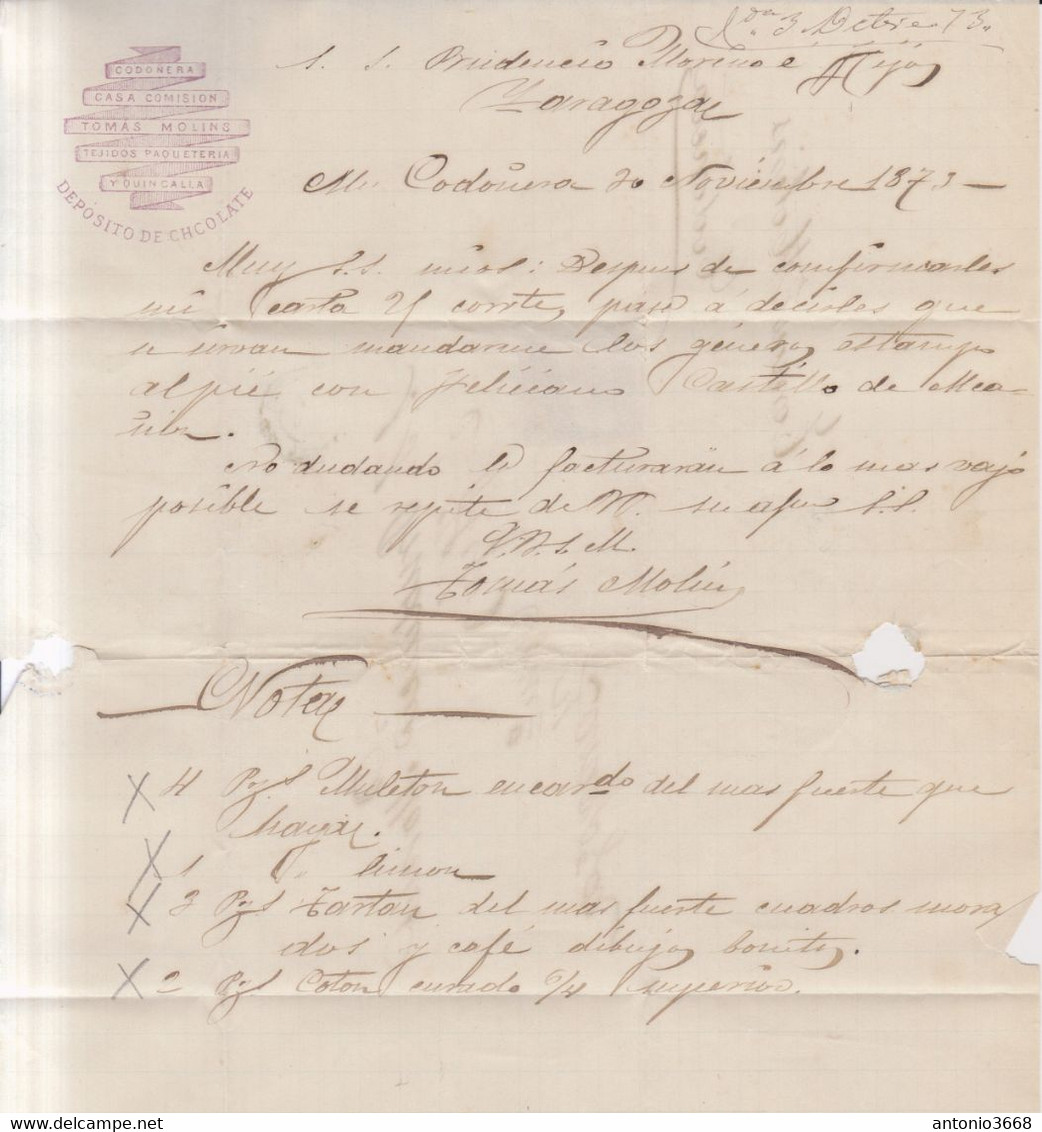 3 Dcbre 73
CODOÑERA
CASA COMISION
TOMAS MOLINS
TEJIDOS PAQUETERIA
Y QUINCALLA
DEPOSITO DE CHCOLATE
S. S. Prudencio Moreno e Hijos
Zaragoza
Codoñera 20 Noviembre 1873
Muy S.S. mios: Despues de comfirmarles
mi carta corrte, paso á decirles que
se sirvan mandarme los géneros estampo
al pié con Feliciano Castillo de
No dudando lo facturarán á lo mas vajo
posible se repite de V. su afmo S.S.
Q.B.S.M.
Tomás Molins
Nota
4 Pzs Muleton encardo del mas fuerte que
haya.
1 limon
3 Pzs Tartan del mas fuerte cuadros mora
dos y café dibujos bonitos.
2 Pzs Coton curado 6/4 superior.
antonio3668